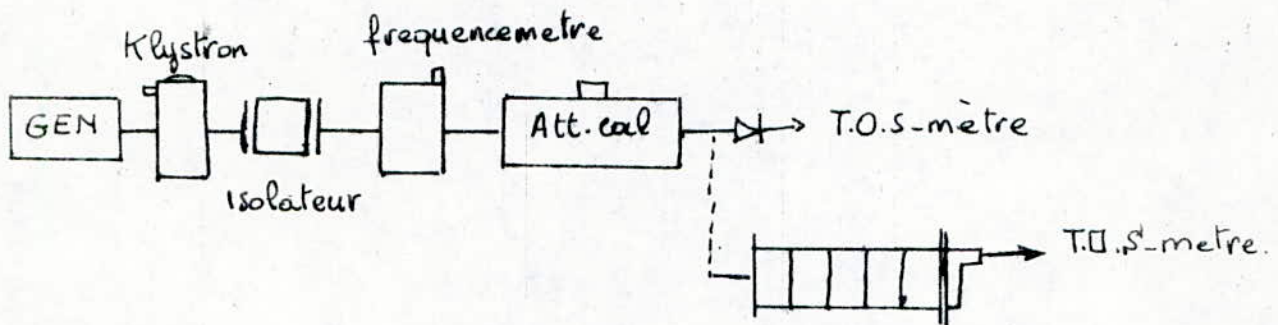 Klystron
frequencemetre
GEN
Att. cal
T.O.S-mètre
Isolateur
T.O.S-metre.